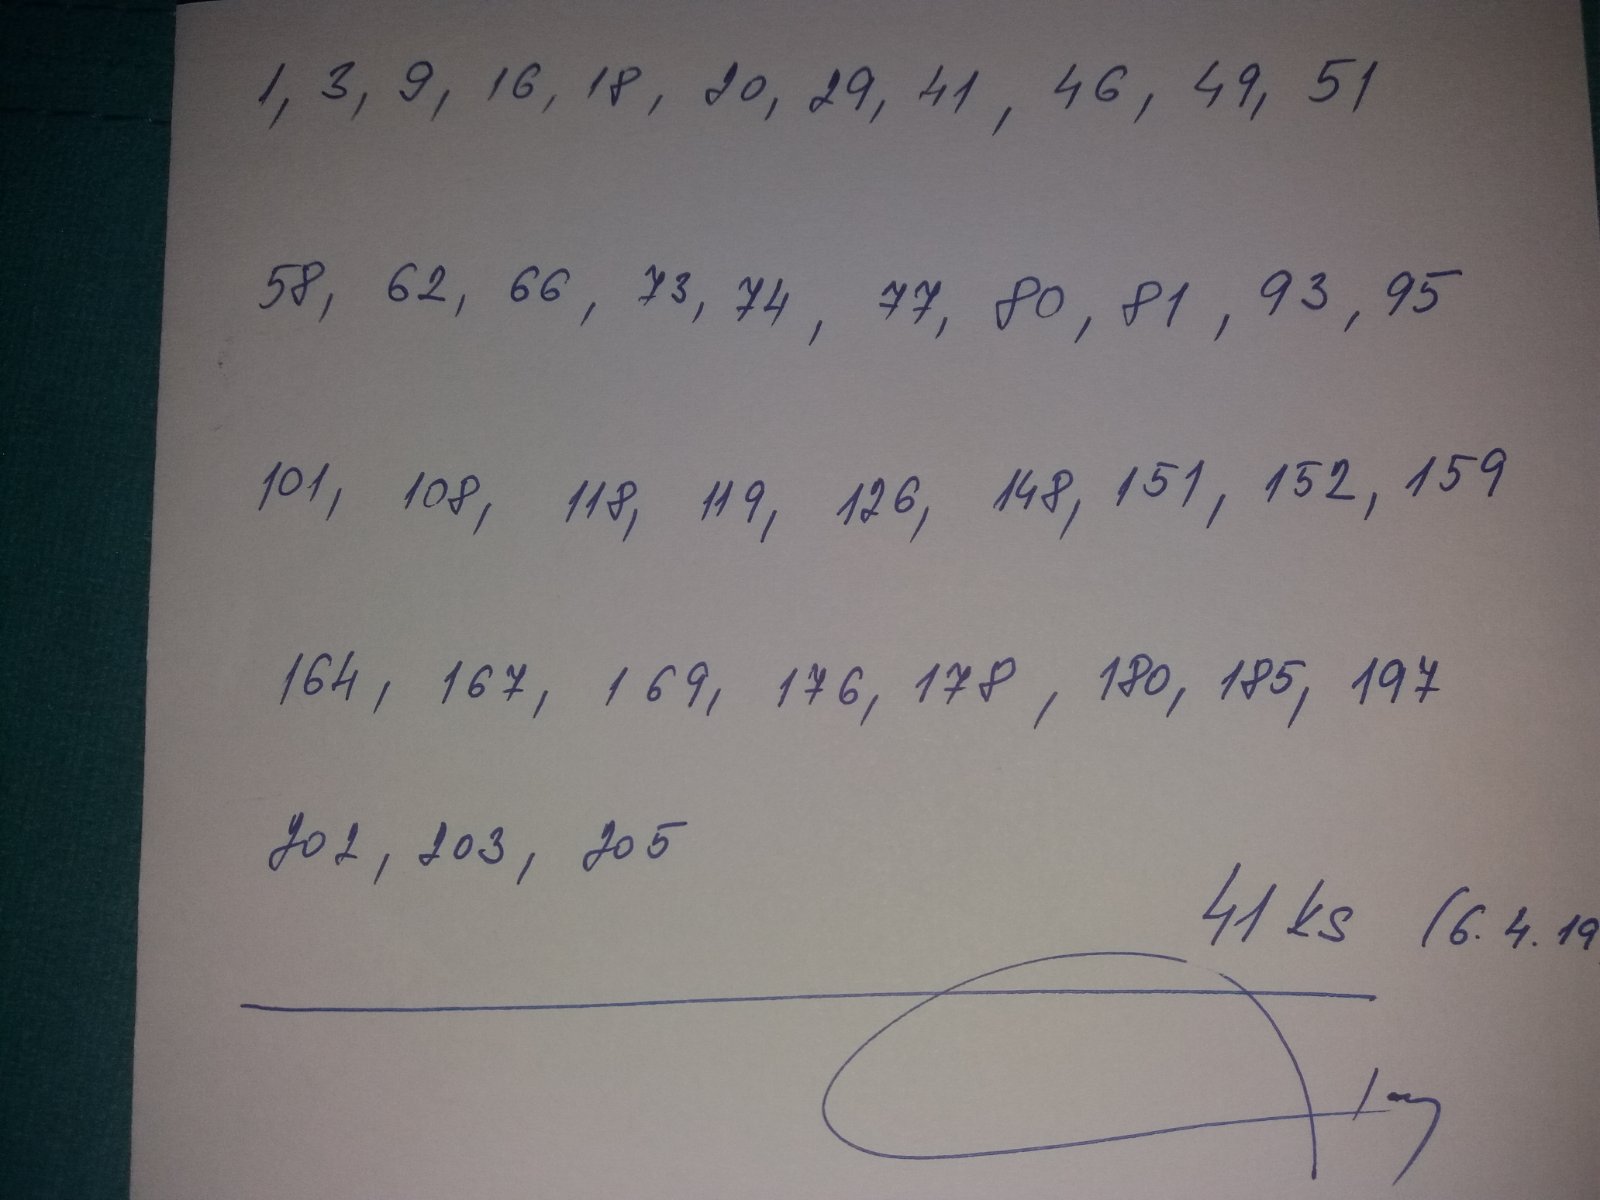 1, 3, 9, 16, 18, 20, 29, 41, 46, 49, 51
58, 62, 66, 73, 74, 77, 80, 81, 93, 95
101, 108, 118, 119, 126, 148, 151, 152, 159
164, 167, 169, 176, 178, 180, 185, 197
202, 203, 205
41 ks (6. 4. 19